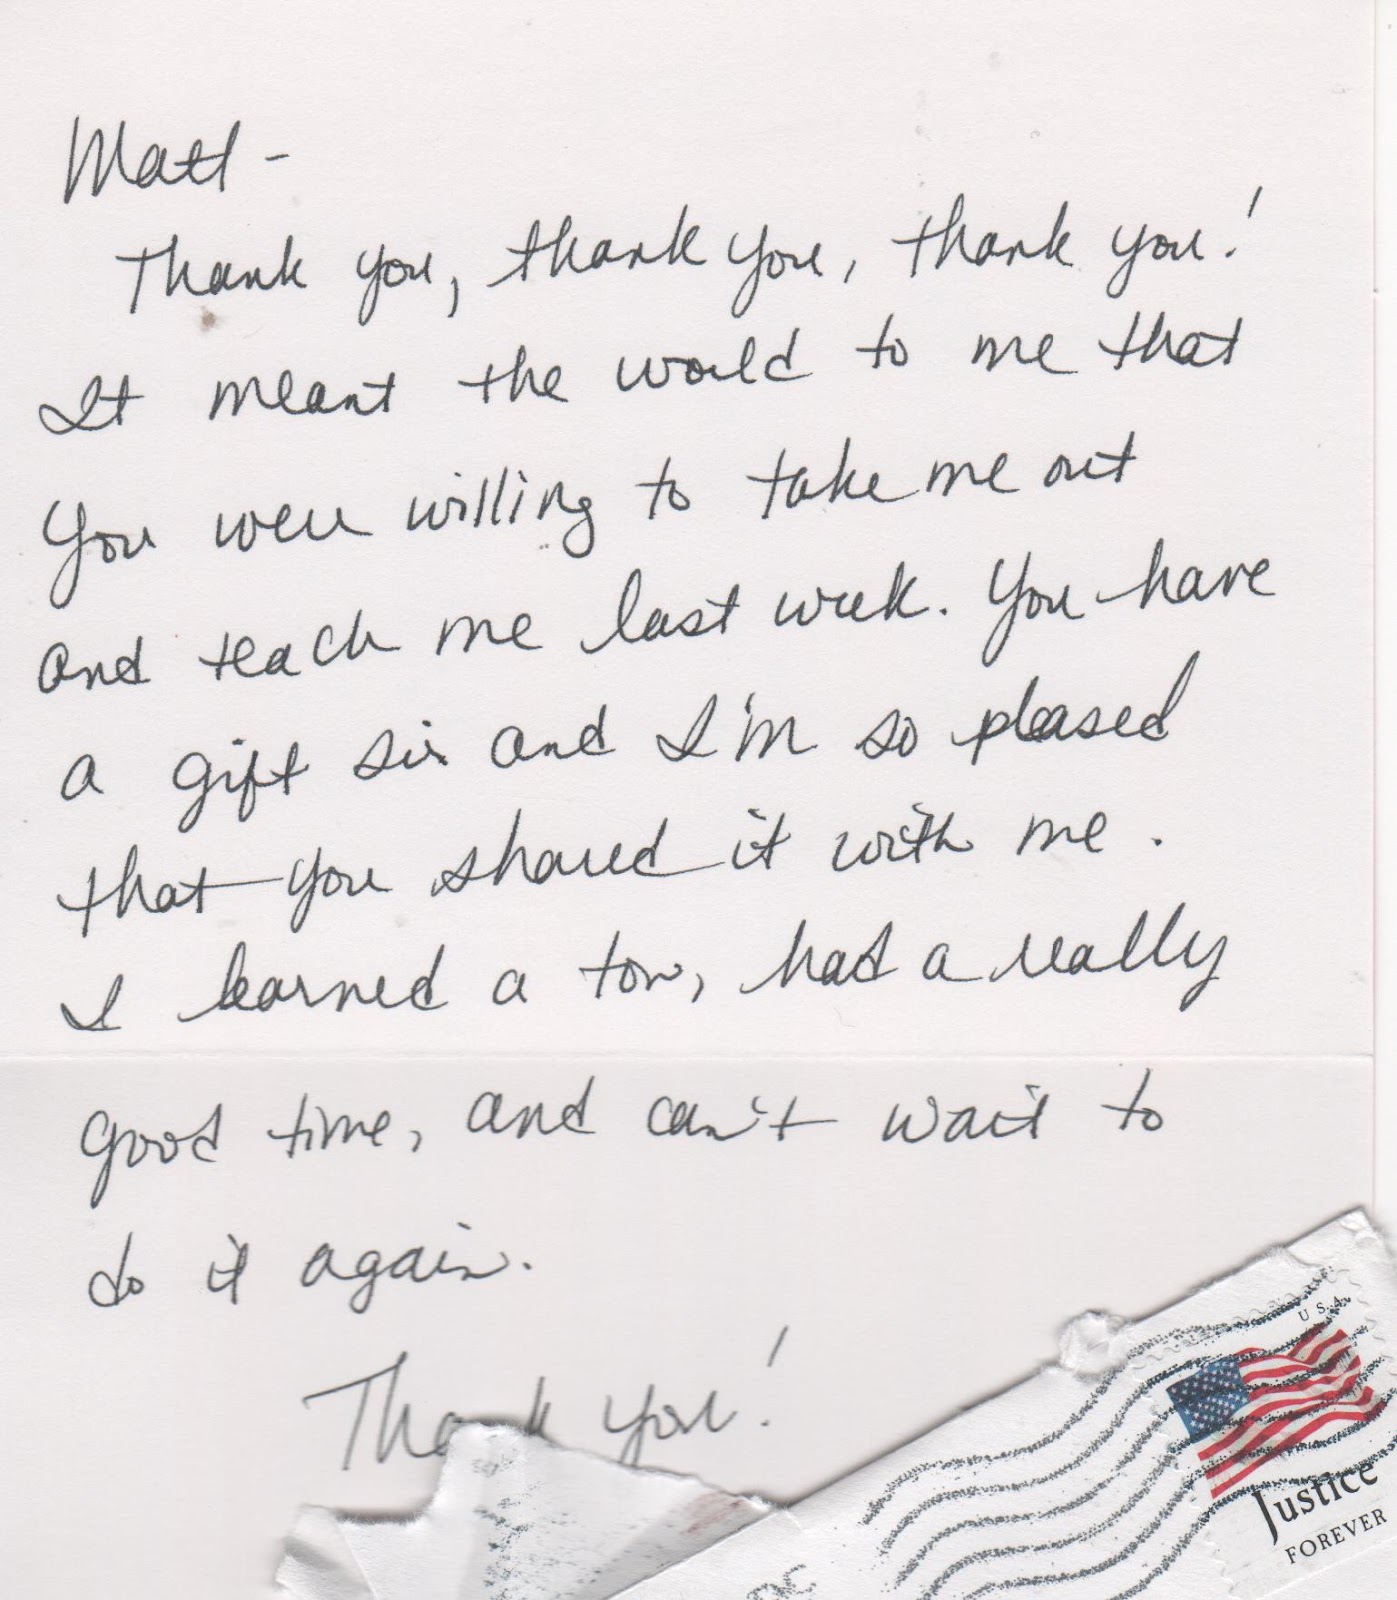 Matt -
Thank you, thank you, thank you!
It meant the world to me that
you were willing to take me out
and teach me last week. You have
a gift sir and I'm so pleased
that you shared it with me.
I learned a ton, had a really
good time, and can't wait to
do it again.
Thank you!
USA
Justice
FOREVER